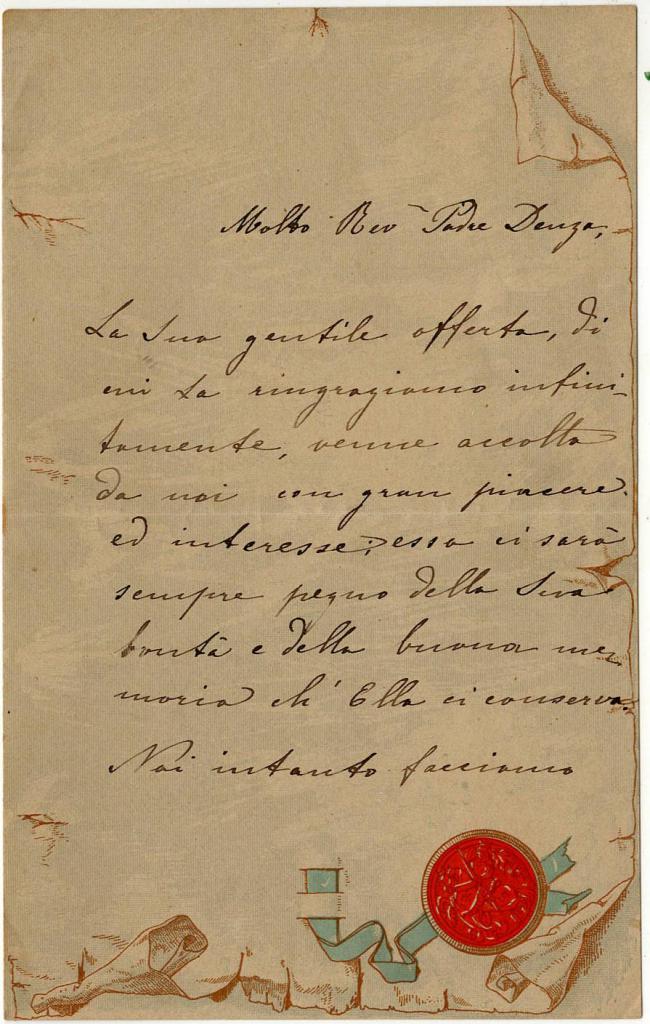 Molto Rev~ Padre Denza,
La Sua gentile offerta, di
cui La ringraziamo infini-
tamente, venne accolta
da noi con gran piacere
ed interesse; essa ci sarà
sempre pegno della Sua
bontà e della buona me-
moria ch' Ella ci conserva.
Noi intanto facciamo